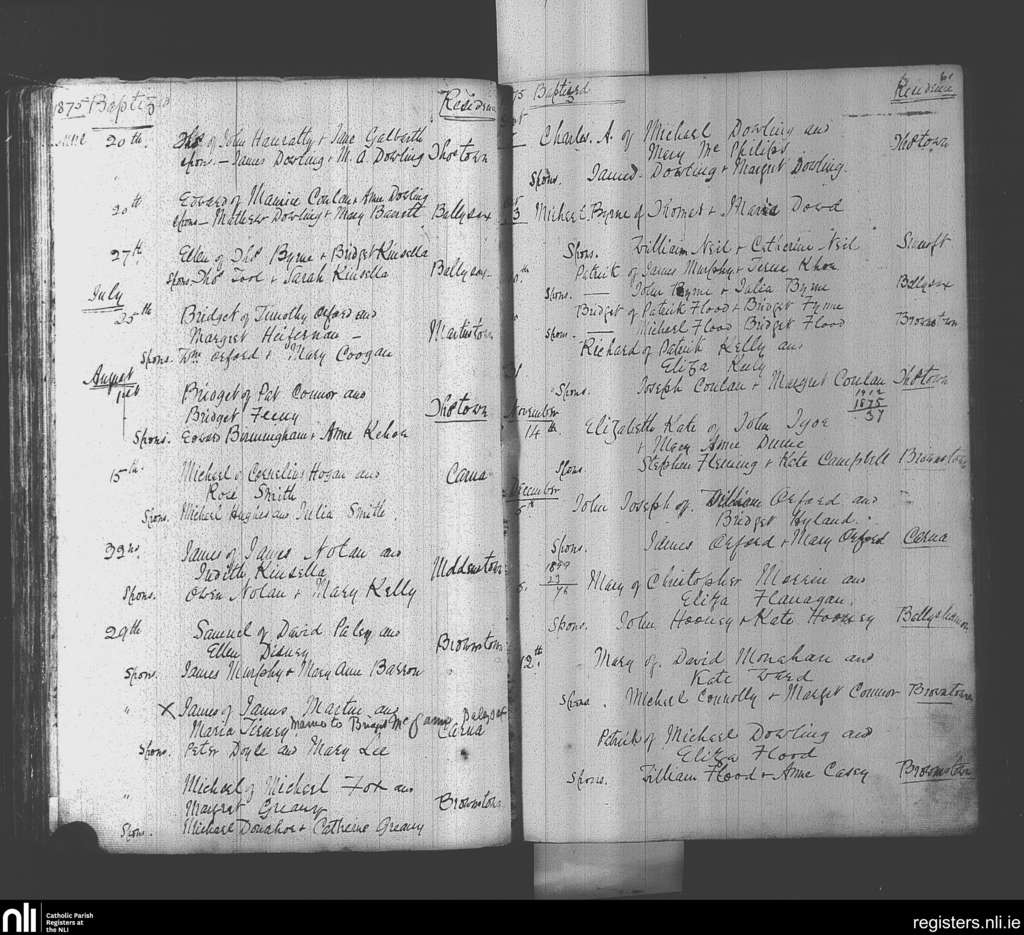 1875 Baptized
Residence
June 20th. Thos of John Hanratty & Jane Galbraith
Spons. — James Dowling & M. A. Dowling Thostown
20th Edward of Maurice Conlan & Anne Dowling
Spons — Mathew Dowling & Mary Barrett Ballysax
27th. Ellen of Thos Byrne & Bridget Kinsella
Spons. Thos Tool & Sarah Kinsella Ballysax
July
25th Bridget of Timothy Orford and
Margret Heifernan — Martinstown
Spons. Wm Orford & Mary Coogan
August
1st Bridget of Pat Connor and
Bridget Feeny Thostown
Spons. Edward Birmingham & Anne Kehoe
15th. Michael of Cornelius Hogan and
Rose Smith Carna
Spons. Michael Hughes and Julia Smith.
22nd. James of James Nolan and
Judith Kinsella
Spons. Owen Nolan & Mary Kelly
29th Samuel of David Paley and
Ellen Disney Brownstown
Spons. James Murphy & Mary Ann Barron
" X James of James Martin and
Maria Tierney Married to Bridget Mc Ballysax
Carna
Spons. Peter Doyle and Mary Lee
" Michael of Michael Fox and
Margret Greany Brownstown
Spons. Michael Donahoe & Catherine Greany
75 Baptized
Residence
Charles. A. of Michael Dowling and
Mary Mc Philips Thostown
Spons. James Dowling & Margret Dowling.
3 Michael Byrne of Thomas & Maria Dowd
Spons. William Neil & Catherine Neil
Patrick of James Murphy & Kehoe
Spons. — John Byrne & Julia Byrne Ballysax
Bridget of Patrick Flood & Bridget
Spons. — Michael Flood Bridget Flood Brownstown
Richard of Patrick Kelly and
31 Eliza
Spons. Joseph Conlan & Margret Conlan Thostown
1912
1875
37
November
14th. Elizabeth Kate of John
& Mary Anne Dunne
Spons. Stephen Fleming & Kate Campbell Brownstown
December
5th John Joseph of William Orford and
Bridget Hyland.
Spons. James Orford & Mary Orford Carna
1899
23
76
Mary of Christopher Morrin and
Eliza Flanagan.
Spons. John Hooney & Kate Hooney Ballyshannon
12th. Mary of David Monahan and
Kate Ward
Spons. Michael Connolly & Margret Connor Brownstown
Patrick of Michael Dowling and
Eliza Flood
Spons. William Flood & Anne Casey Brownstown
nli
Catholic Parish
Registers at
the NLI
registers.nli.ie